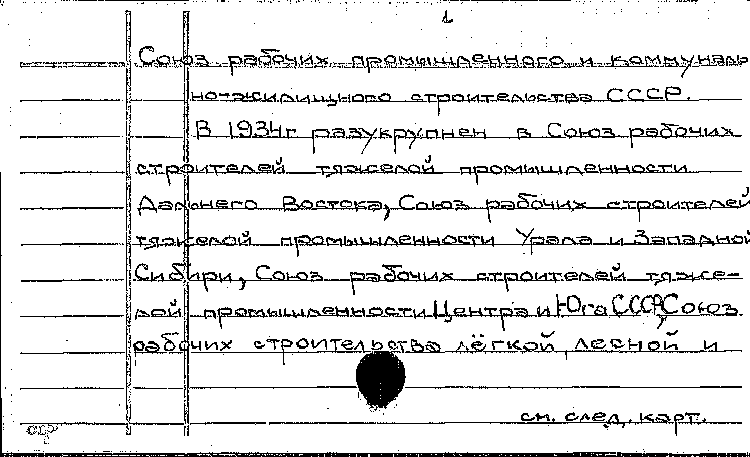 1
Союз рабочих промышленного и коммуналь
ножилищного строительства СССР.
В 1934г разукрупнен в Союз рабочих
строителей тяжелой промышленности
Дальнего Востока, Союз рабочих строителей
тяжелой промышленности Урала и Западной
Сибири, Союз рабочих строителей тяже-
лой промышленности Центра и Юга СССР, Союз
рабочих строительства лёгкой, лесной и
см. след. карт.